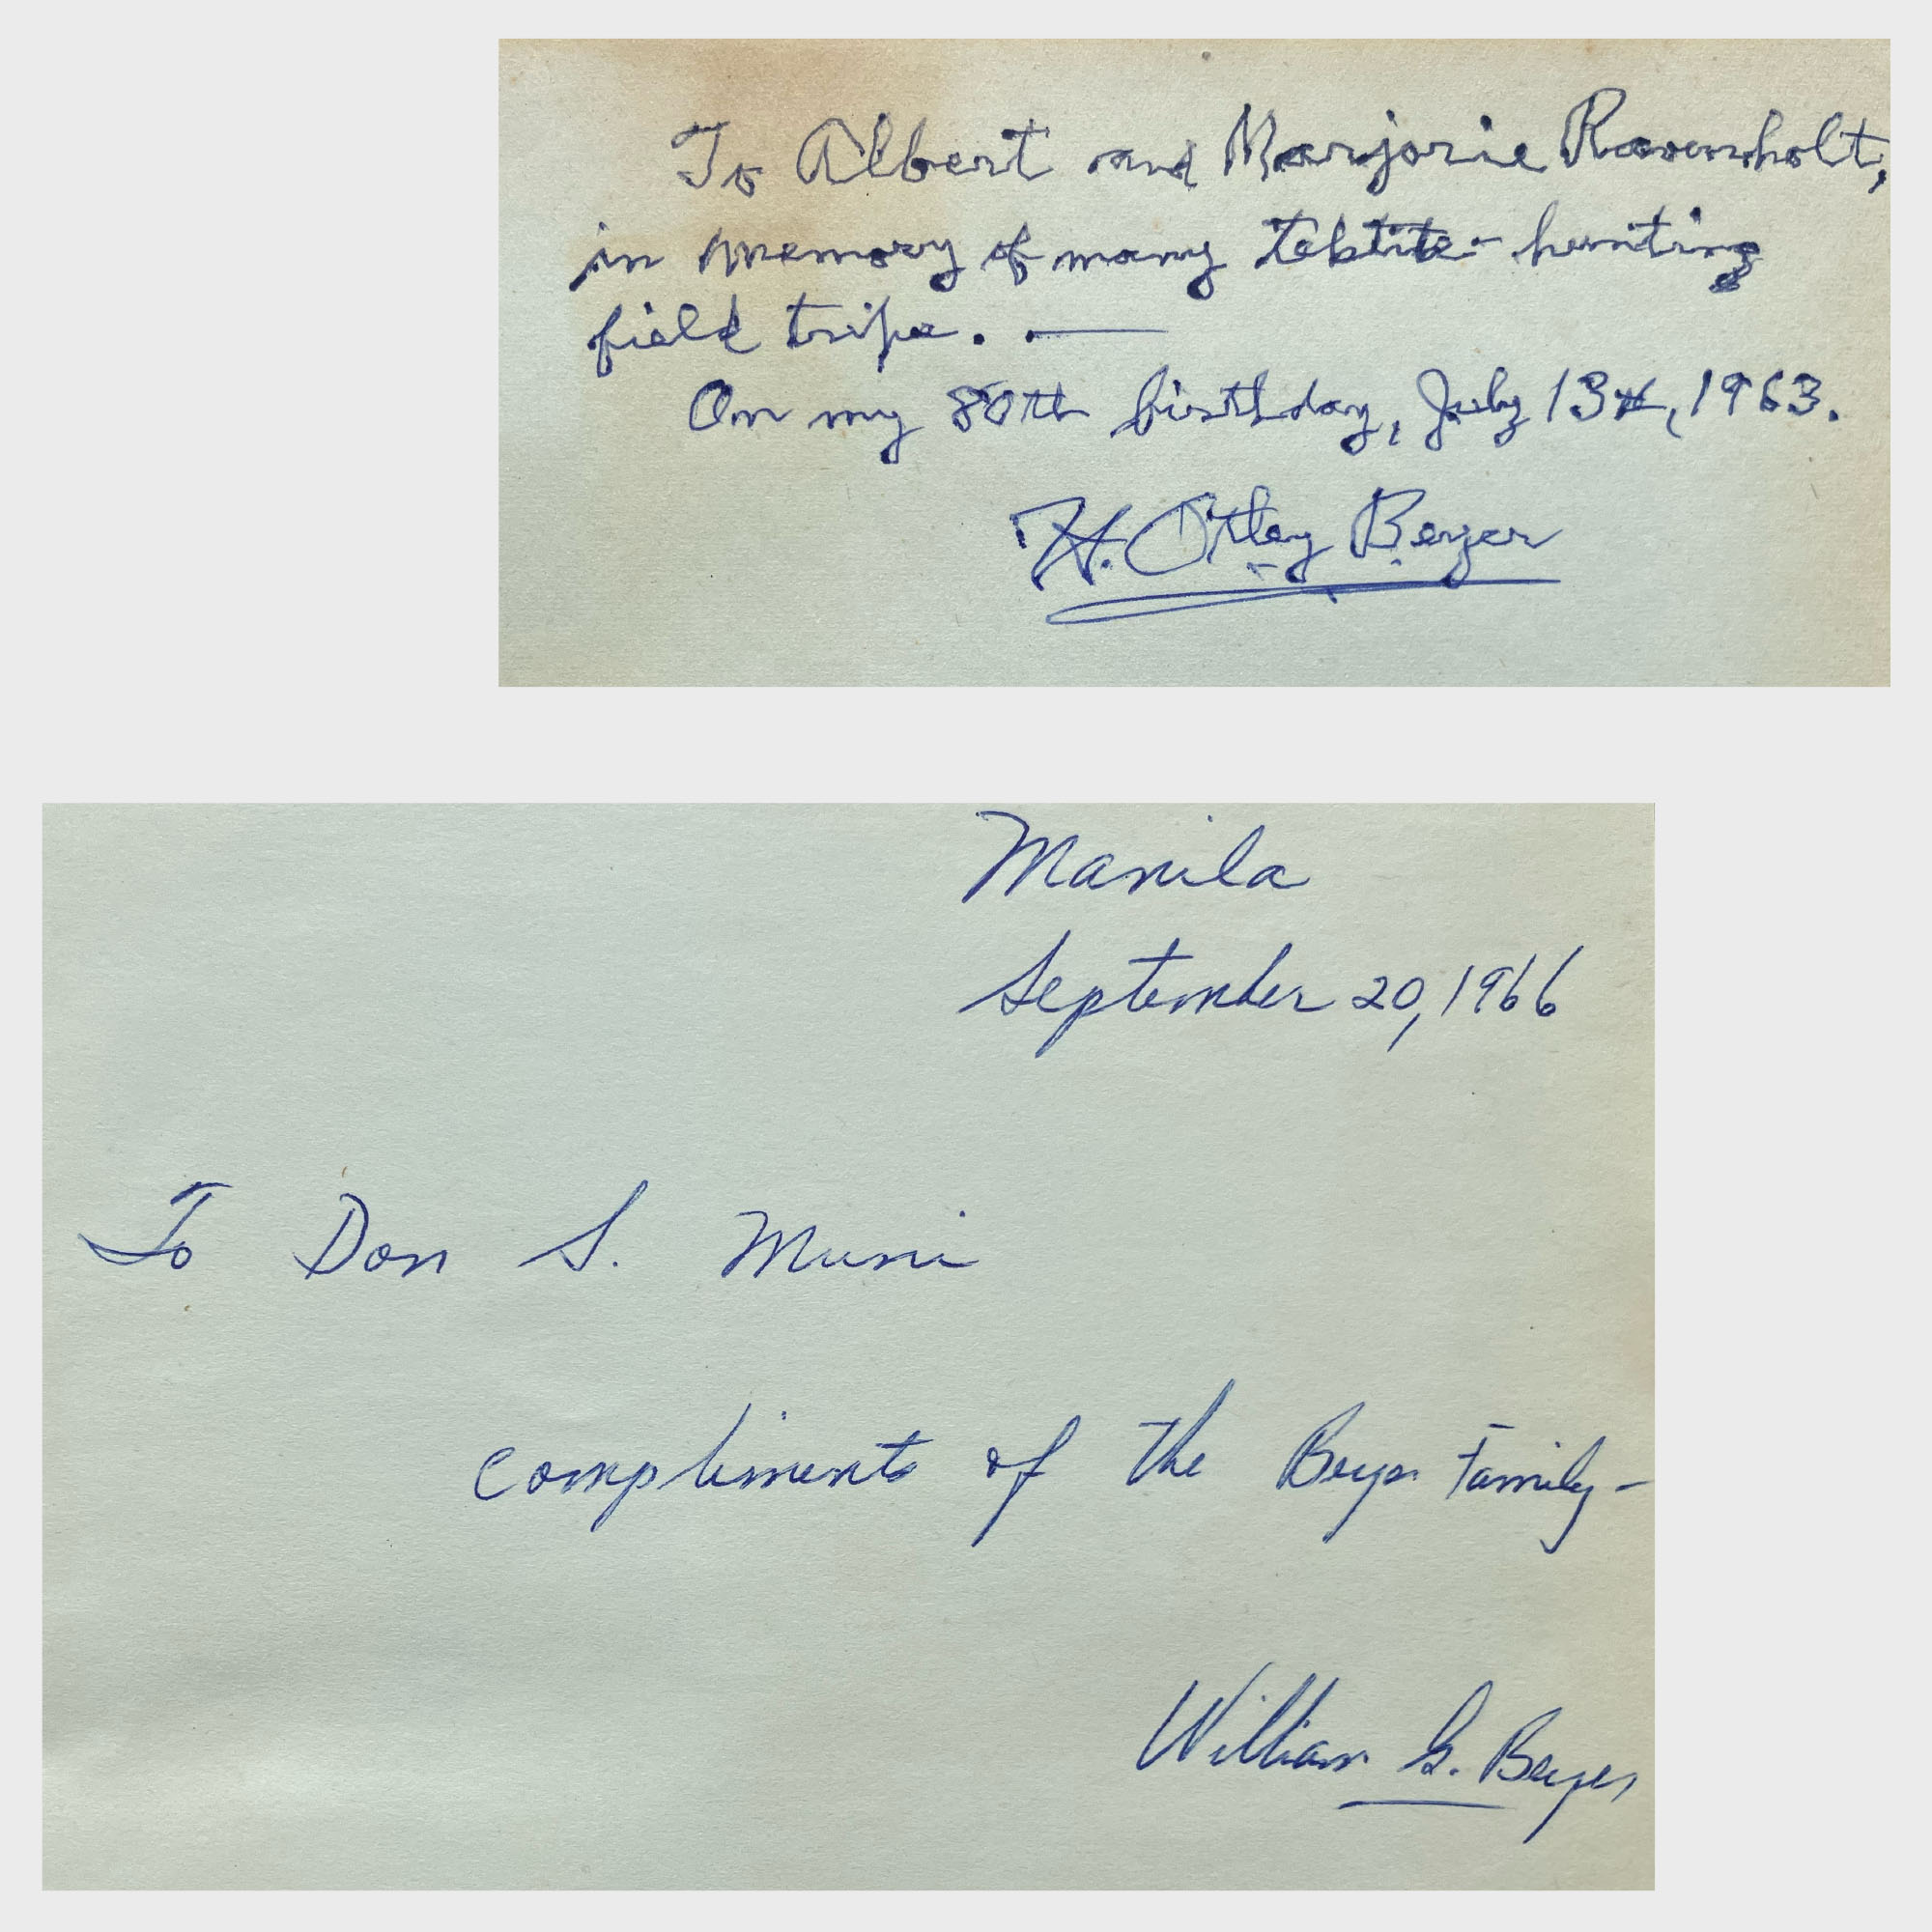 To Albert and Marjorie Ravenholt,
in memory of many tektite-hunting
field trips. . —
On my 80th birthday, July 13th, 1963.
H. Otley Beyer
Manila
September 20, 1966
To Don S. Muni
compliments of the Beyer Family –
William G. Beyer